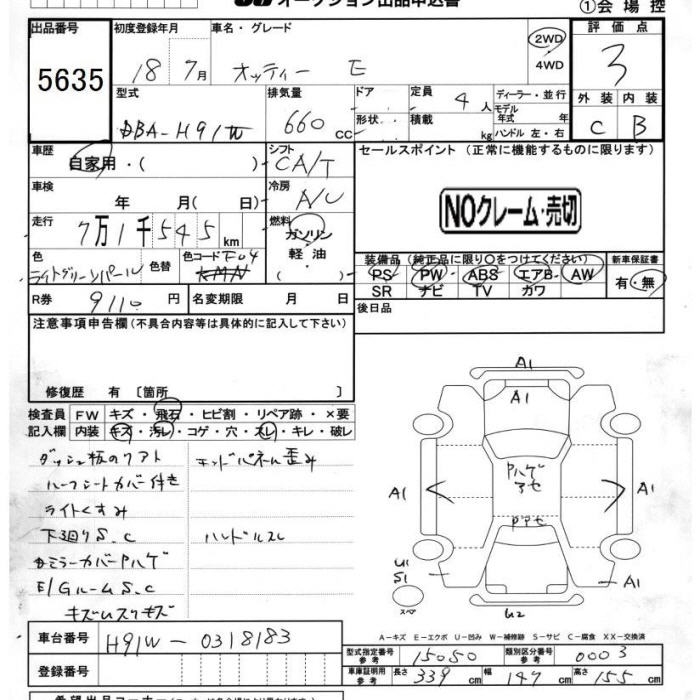 オークション出品申込書
①会場控
出品番号
5635
初度登録年月
18年 7月
車名・グレード
オッティー E
2WD
4WD
評価点
3
外装 内装
C B
型式
DBA-H91W
排気量
660 CC
ドア
形状
定員 4人
積載 kg
ディーラー・並行
モデル年式 年
ハンドル 左・右
車歴
自家用・( )
シフト
CA/T
セールスポイント (正常に機能するものに限ります)
NOクレーム・売切
車検
年 月 ( 日)
冷房
A/C
走行
7万1千545km
燃料
ガソリン
軽油
( )
色
ライトグリーンパール
色替
色コード F04
KMN
装備品 (純正品に限り〇をつけてください)
PS PW ABS エアB AW
SR ナビ TV カワ
新車保証書
有・無
R券 9110 円
名変期限 月 日
後日品
注意事項申告欄 (不具合内容等は具体的に記入して下さい)
修復歴 有 〔箇所 〕
検査員記入欄
FW キズ・飛石・ヒビ割・リペア跡・×要
内装 キズ・汚レ・コゲ・穴・スレ・キレ・破レ
ダッシュ板のリアト
エンドパネル歪み
ハーフシートカバー付き
ライトくすみ
下回りS.C
ハンドルスレ
ミラーカバーPハゲ
E/GルームS.C
A1
A1
A1
A1
Pハゲ
アセ
Pアセ
U1
S1
A1
スペア
U2
A-キズ E-エクボ U-凹み W-補修跡 S-サビ C-腐食 XX-交換済
車台番号
H91W-0318183
登録番号
型式指定番号 参考 15050
類別区分番号 参考 0003
車庫証明用 参考 長さ 339 cm 幅 147 cm 高さ 155 cm